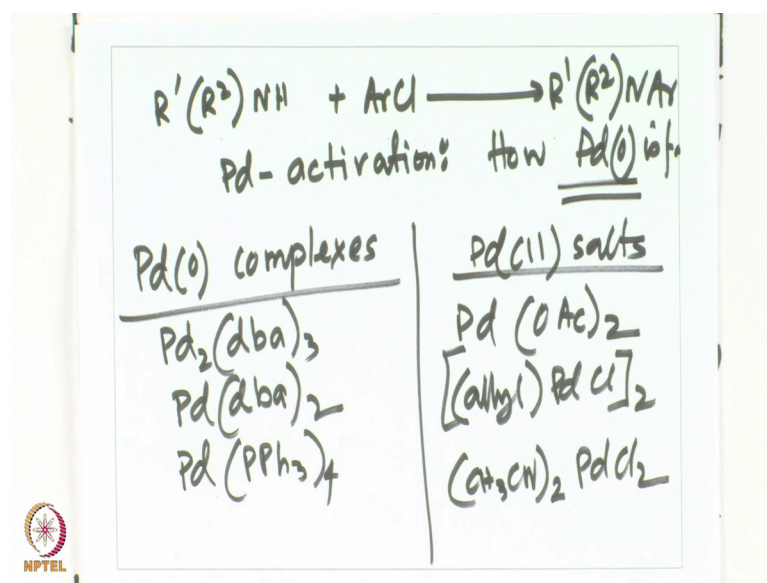 R'(R²)NH + ArCl → R'(R²)NAr
Pd-activation: How Pd(0) is
Pd(0) complexes
Pd₂(dba)₃
Pd(dba)₂
Pd(PPh₃)₄
Pd(II) salts
Pd(OAc)₂
[(allyl)PdCl]₂
(CH₃CN)₂PdCl₂
NPTEL